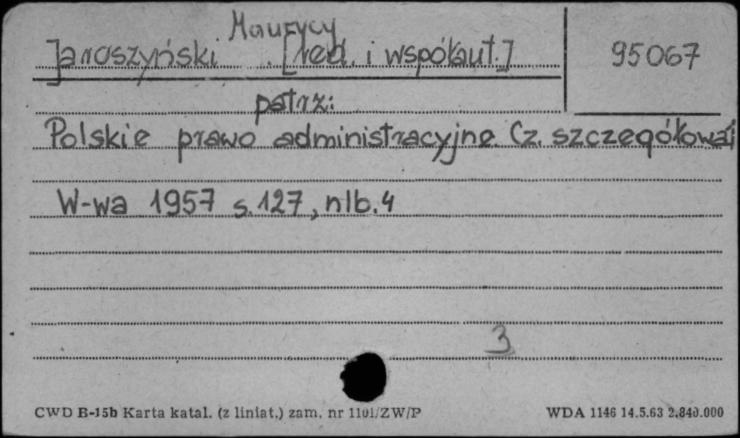 Jaroszyński Maurycy [red. i współaut.]
95067
patrz:
Polskie prawo administracyjne. Cz. szczegółowa
W-wa 1957 s. 127, nlb. 4
3
CWD B-15b Karta katal. (z liniat.) zam. nr 1101/ZW/P
WDA 1146 14.5.63 2.840.000